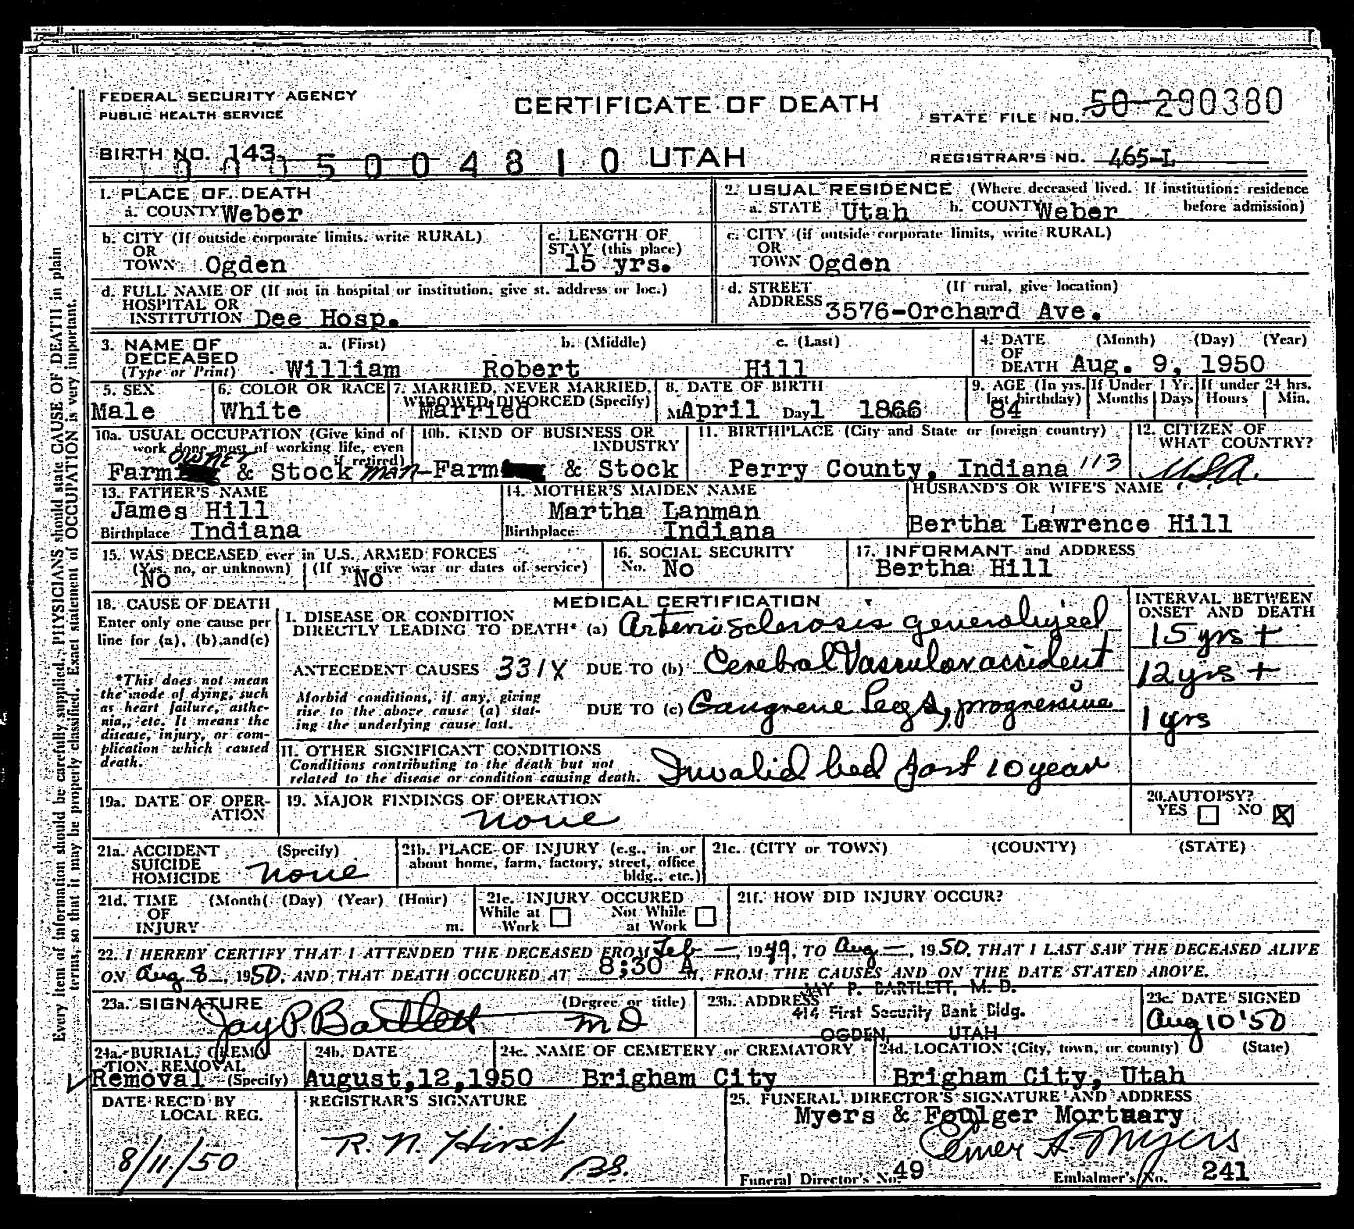 FEDERAL SECURITY AGENCY
PUBLIC HEALTH SERVICE
CERTIFICATE OF DEATH
STATE FILE NO. 50-290380
BIRTH NO. 143
0005004810 UTAH
REGISTRAR'S NO. 465-L
1. PLACE OF DEATH
a. COUNTY Weber
2. USUAL RESIDENCE (Where deceased lived. If institution: residence before admission)
a. STATE Utah b. COUNTY Weber
b. CITY (If outside corporate limits, write RURAL)
OR
TOWN Ogden
c. LENGTH OF
STAY (this place)
15 yrs.
c. CITY (if outside corporate limits, write RURAL)
OR
TOWN Ogden
d. FULL NAME OF (If not in hospital or institution, give st. address or loc.)
HOSPITAL OR
INSTITUTION Dee Hosp.
d. STREET (If rural, give location)
ADDRESS 3576-Orchard Ave.
3. NAME OF
DECEASED
(Type or Print)
a. (First) b. (Middle) c. (Last)
William Robert Hill
4. DATE (Month) (Day) (Year)
OF
DEATH Aug. 9, 1950
5. SEX
Male
6. COLOR OR RACE
White
7. MARRIED, NEVER MARRIED,
WIDOWED, DIVORCED (Specify)
Married
8. DATE OF BIRTH
M April Day 1 1866
9. AGE (In yrs. last birthday)
84
If Under 1 Yr.
Months Days
If under 24 hrs.
Hours Min.
10a. USUAL OCCUPATION (Give kind of
work done most of working life, even
if retired)
Farm owner & Stock man
10b. KIND OF BUSINESS OR
INDUSTRY
Farm & Stock
11. BIRTHPLACE (City and State or foreign country)
Perry County, Indiana 113
12. CITIZEN OF
WHAT COUNTRY?
USA.
13. FATHER'S NAME
James Hill
Birthplace Indiana
14. MOTHER'S MAIDEN NAME
Martha Lanman
Birthplace Indiana
HUSBAND'S OR WIFE'S NAME
Bertha Lawrence Hill
15. WAS DECEASED ever in U.S. ARMED FORCES
(Yes, no, or unknown) (If yes, give war or dates of service)
No No
16. SOCIAL SECURITY
No. No
17. INFORMANT and ADDRESS
Bertha Hill
18. CAUSE OF DEATH
Enter only one cause per
line for (a), (b), and (c)
*This does not mean
the mode of dying, such
as heart failure, asthe-
nia, etc. It means the
disease, injury, or com-
plication which caused
death.
MEDICAL CERTIFICATION
INTERVAL BETWEEN
ONSET AND DEATH
I. DISEASE OR CONDITION
DIRECTLY LEADING TO DEATH* (a) Arteriosclerosis generalized
15 yrs +
ANTECEDENT CAUSES 331X DUE TO (b) Cerebral Vascular accident
12 yrs +
Morbid conditions, if any, giving
rise to the above cause (a) stat-
ing the underlying cause last.
DUE TO (c) Gangrene Legs, progressive
1 yrs
11. OTHER SIGNIFICANT CONDITIONS
Conditions contributing to the death but not
related to the disease or condition causing death.
Invalid bed past 10 year
19a. DATE OF OPER-
ATION
19. MAJOR FINDINGS OF OPERATION
none
20. AUTOPSY?
YES NO
21a. ACCIDENT (Specify)
SUICIDE
HOMICIDE none
21b. PLACE OF INJURY (e.g., in or
about home, farm, factory, street, office
bldg., etc.)
21c. (CITY or TOWN) (COUNTY) (STATE)
21d. TIME (Month) (Day) (Year) (Hour)
OF
INJURY m.
21e. INJURY OCCURED
While at Work Not While at Work
21f. HOW DID INJURY OCCUR?
22. I HEREBY CERTIFY THAT I ATTENDED THE DECEASED FROM Feb — , 1949, TO Aug — , 1950, THAT I LAST SAW THE DECEASED ALIVE
ON Aug 8, 1950, AND THAT DEATH OCCURED AT 8:30 A M. FROM THE CAUSES AND ON THE DATE STATED ABOVE.
23a. SIGNATURE (Degree or title)
Jay P. Bartlett MD
23b. ADDRESS
JAY P. BARTLETT, M. D.
414 First Security Bank Bldg.
OGDEN, UTAH
23c. DATE SIGNED
Aug 10 '50
24a. BURIAL, CREMA-
TION, REMOVAL
Removal (Specify)
24b. DATE
August, 12, 1950
24c. NAME OF CEMETERY or CREMATORY
Brigham City
24d. LOCATION (City, town, or county) (State)
Brigham City, Utah
DATE REC'D BY
LOCAL REG.
8/11/50
REGISTRAR'S SIGNATURE
R. N. Hirst
25. FUNERAL DIRECTOR'S SIGNATURE AND ADDRESS
Myers & Foulger Mortuary
Elmer A Myers
Funeral Director's No. 49 Embalmer's No. 241
Every item of information should be carefully supplied. PHYSICIANS should state CAUSE OF DEATH in plain
terms, so that it may be properly classified. Exact statement of OCCUPATION is very important.